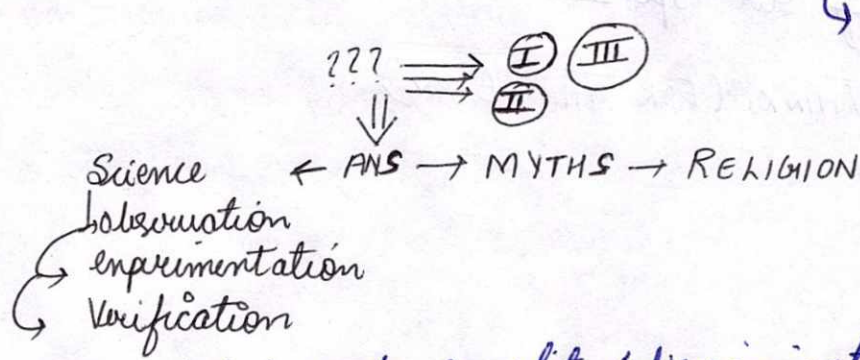 ??? I III
II
Science ← ANS → MYTHS → RELIGION
observation
experimentation
Verification